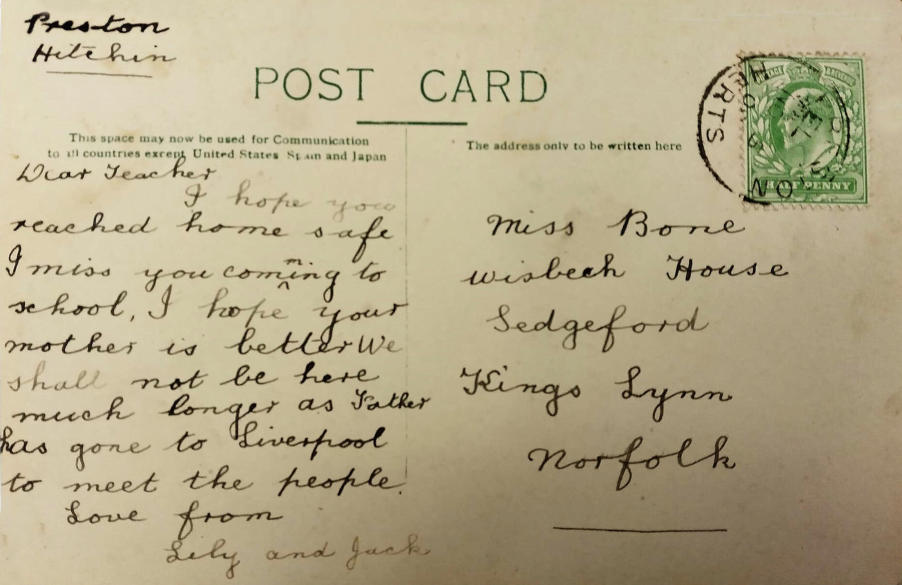 Preston
Hitchin
POST CARD
This space may now be used for Communication
to all countries except United States Spain and Japan
The address only to be written here
HERTS
HALF PENNY
Dear Teacher
I hope you
reached home safe
I miss you comming to
school, I hope your
mother is better We
shall not be here
much longer as Father
has gone to Liverpool
to meet the people.
Love from
Lily and Jack
Miss Bone
Wisbech House
Sedgeford
Kings Lynn
Norfolk